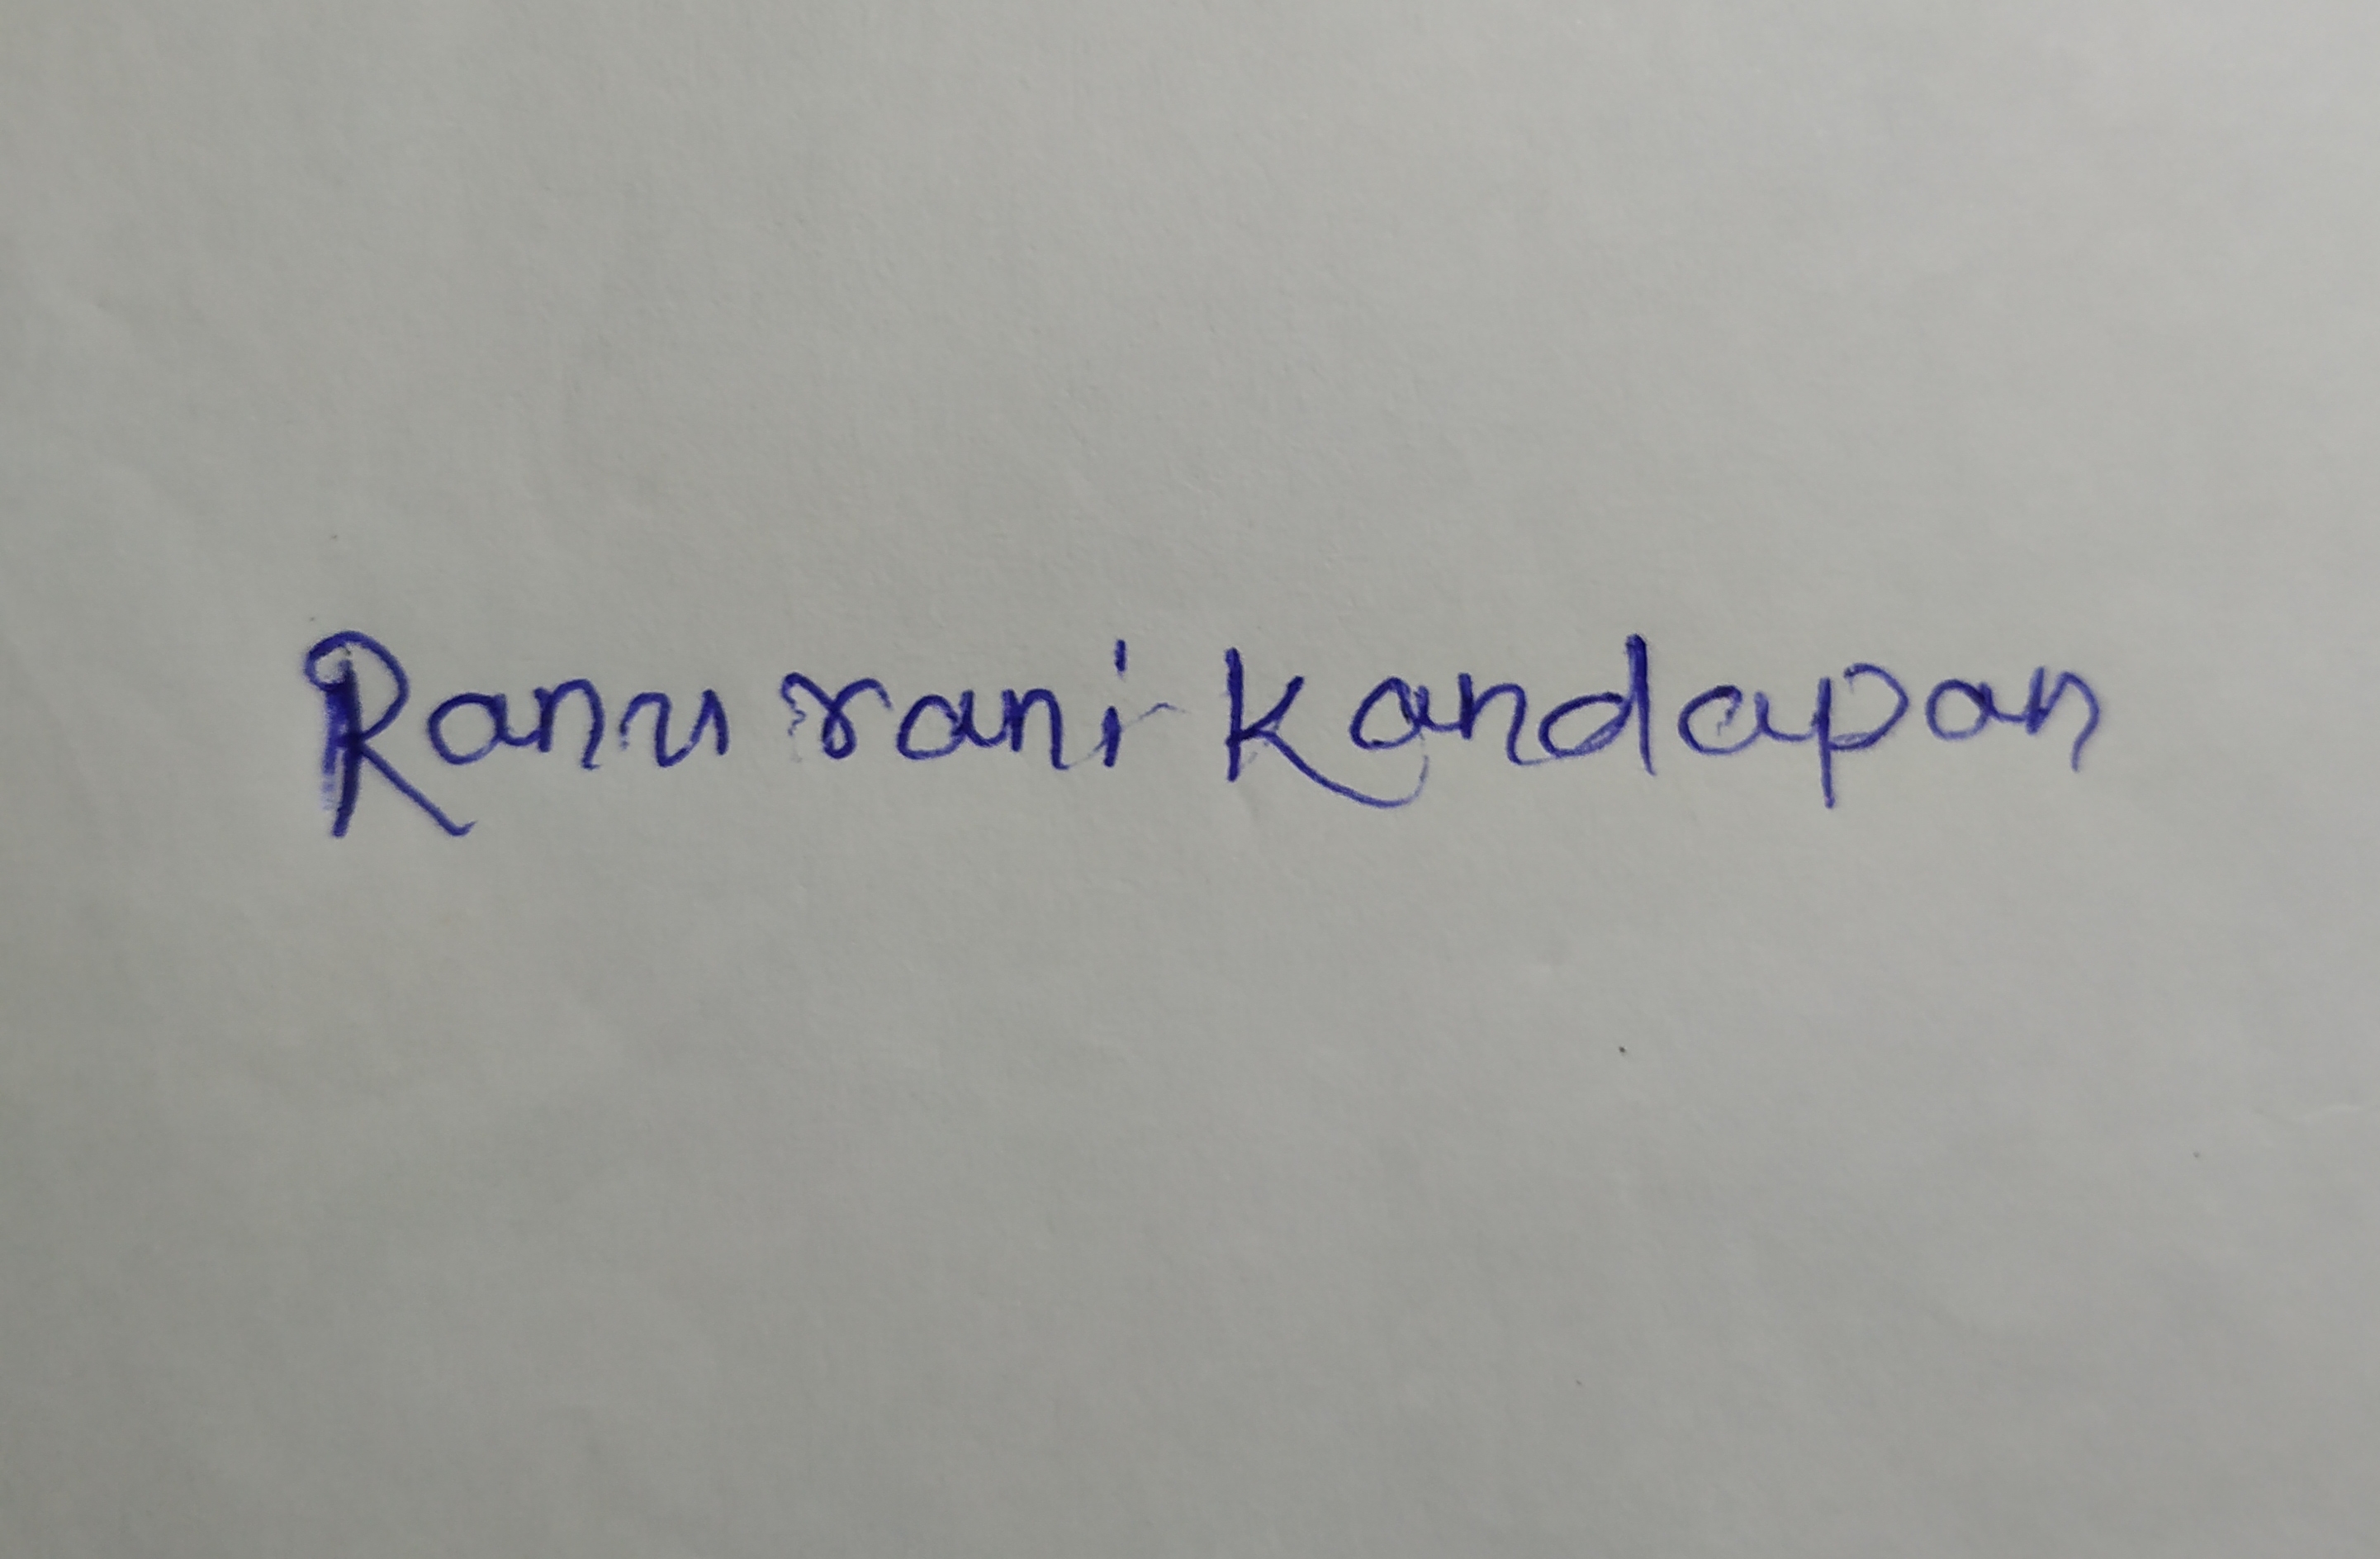 Ranu rani Kandapan